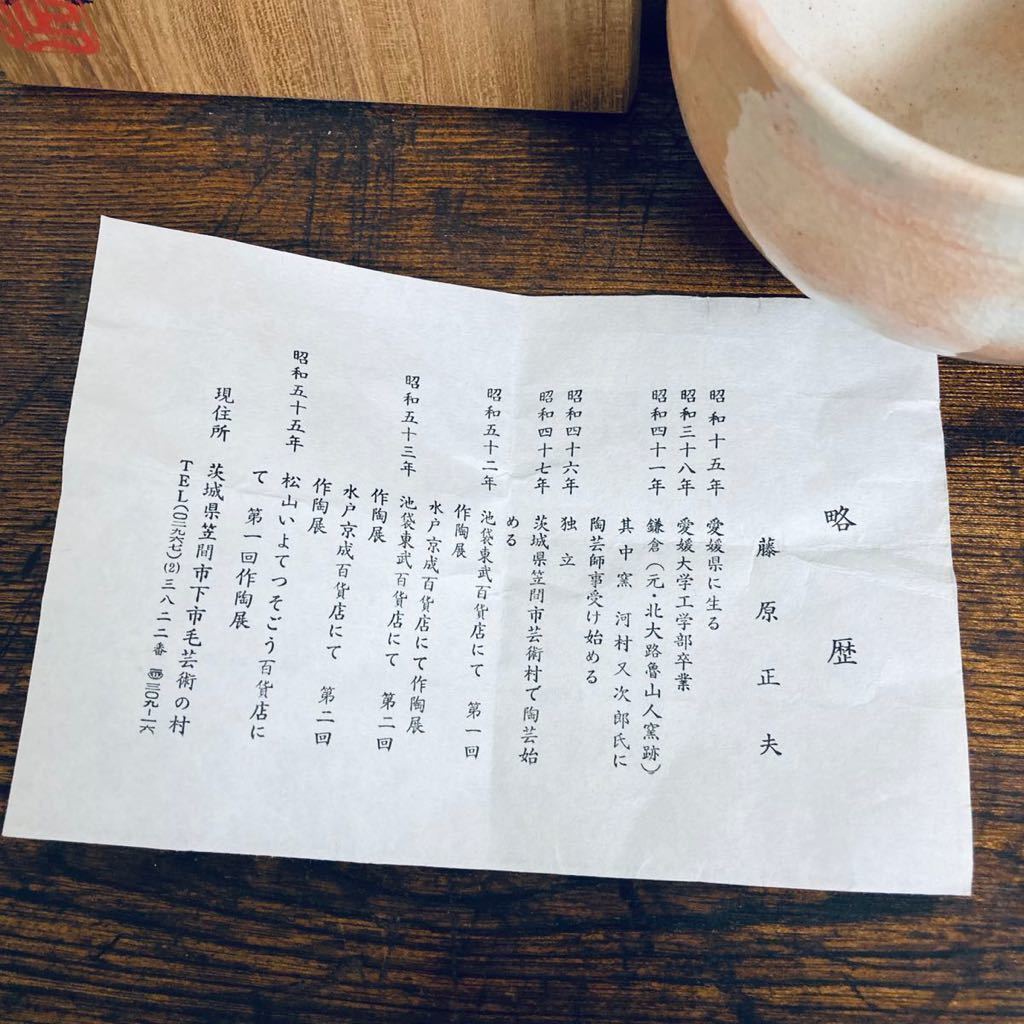 略歴
藤原正夫
昭和十五年 愛媛県に生る
昭和三十八年 愛媛大学工学部卒業
昭和四十一年 鎌倉(元・北大路魯山人窯跡)
其中窯 河村又次郎氏に
陶芸師事受け始める
昭和四十六年 独立
昭和四十七年 茨城県笠間市芸術村で陶芸始
める
昭和五十二年 池袋東武百貨店にて 第一回
作陶展
水戸京成百貨店にて作陶展
昭和五十三年 池袋東武百貨店にて 第二回
作陶展
水戸京成百貨店にて 第二回
作陶展
昭和五十五年 松山いよてつそごう百貨店に
て 第一回作陶展
現住所 茨城県笠間市下市毛芸術の村
TEL(〇二九六七)(2)三八二二番 〒三〇九-一六